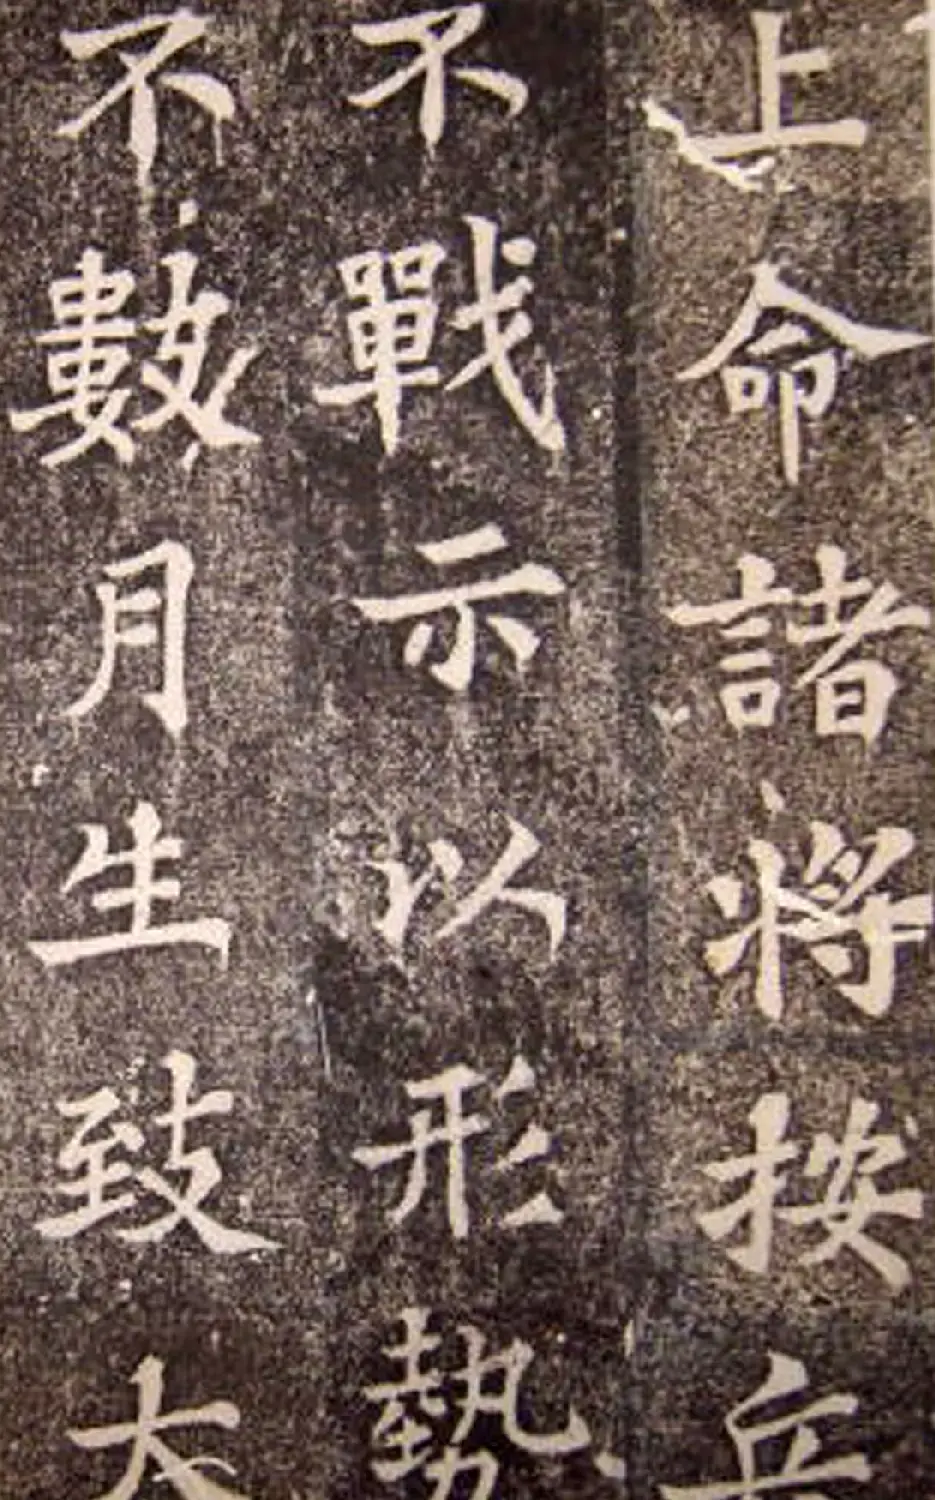 上命諸將按兵
不戰示以形勢
不數月生致大